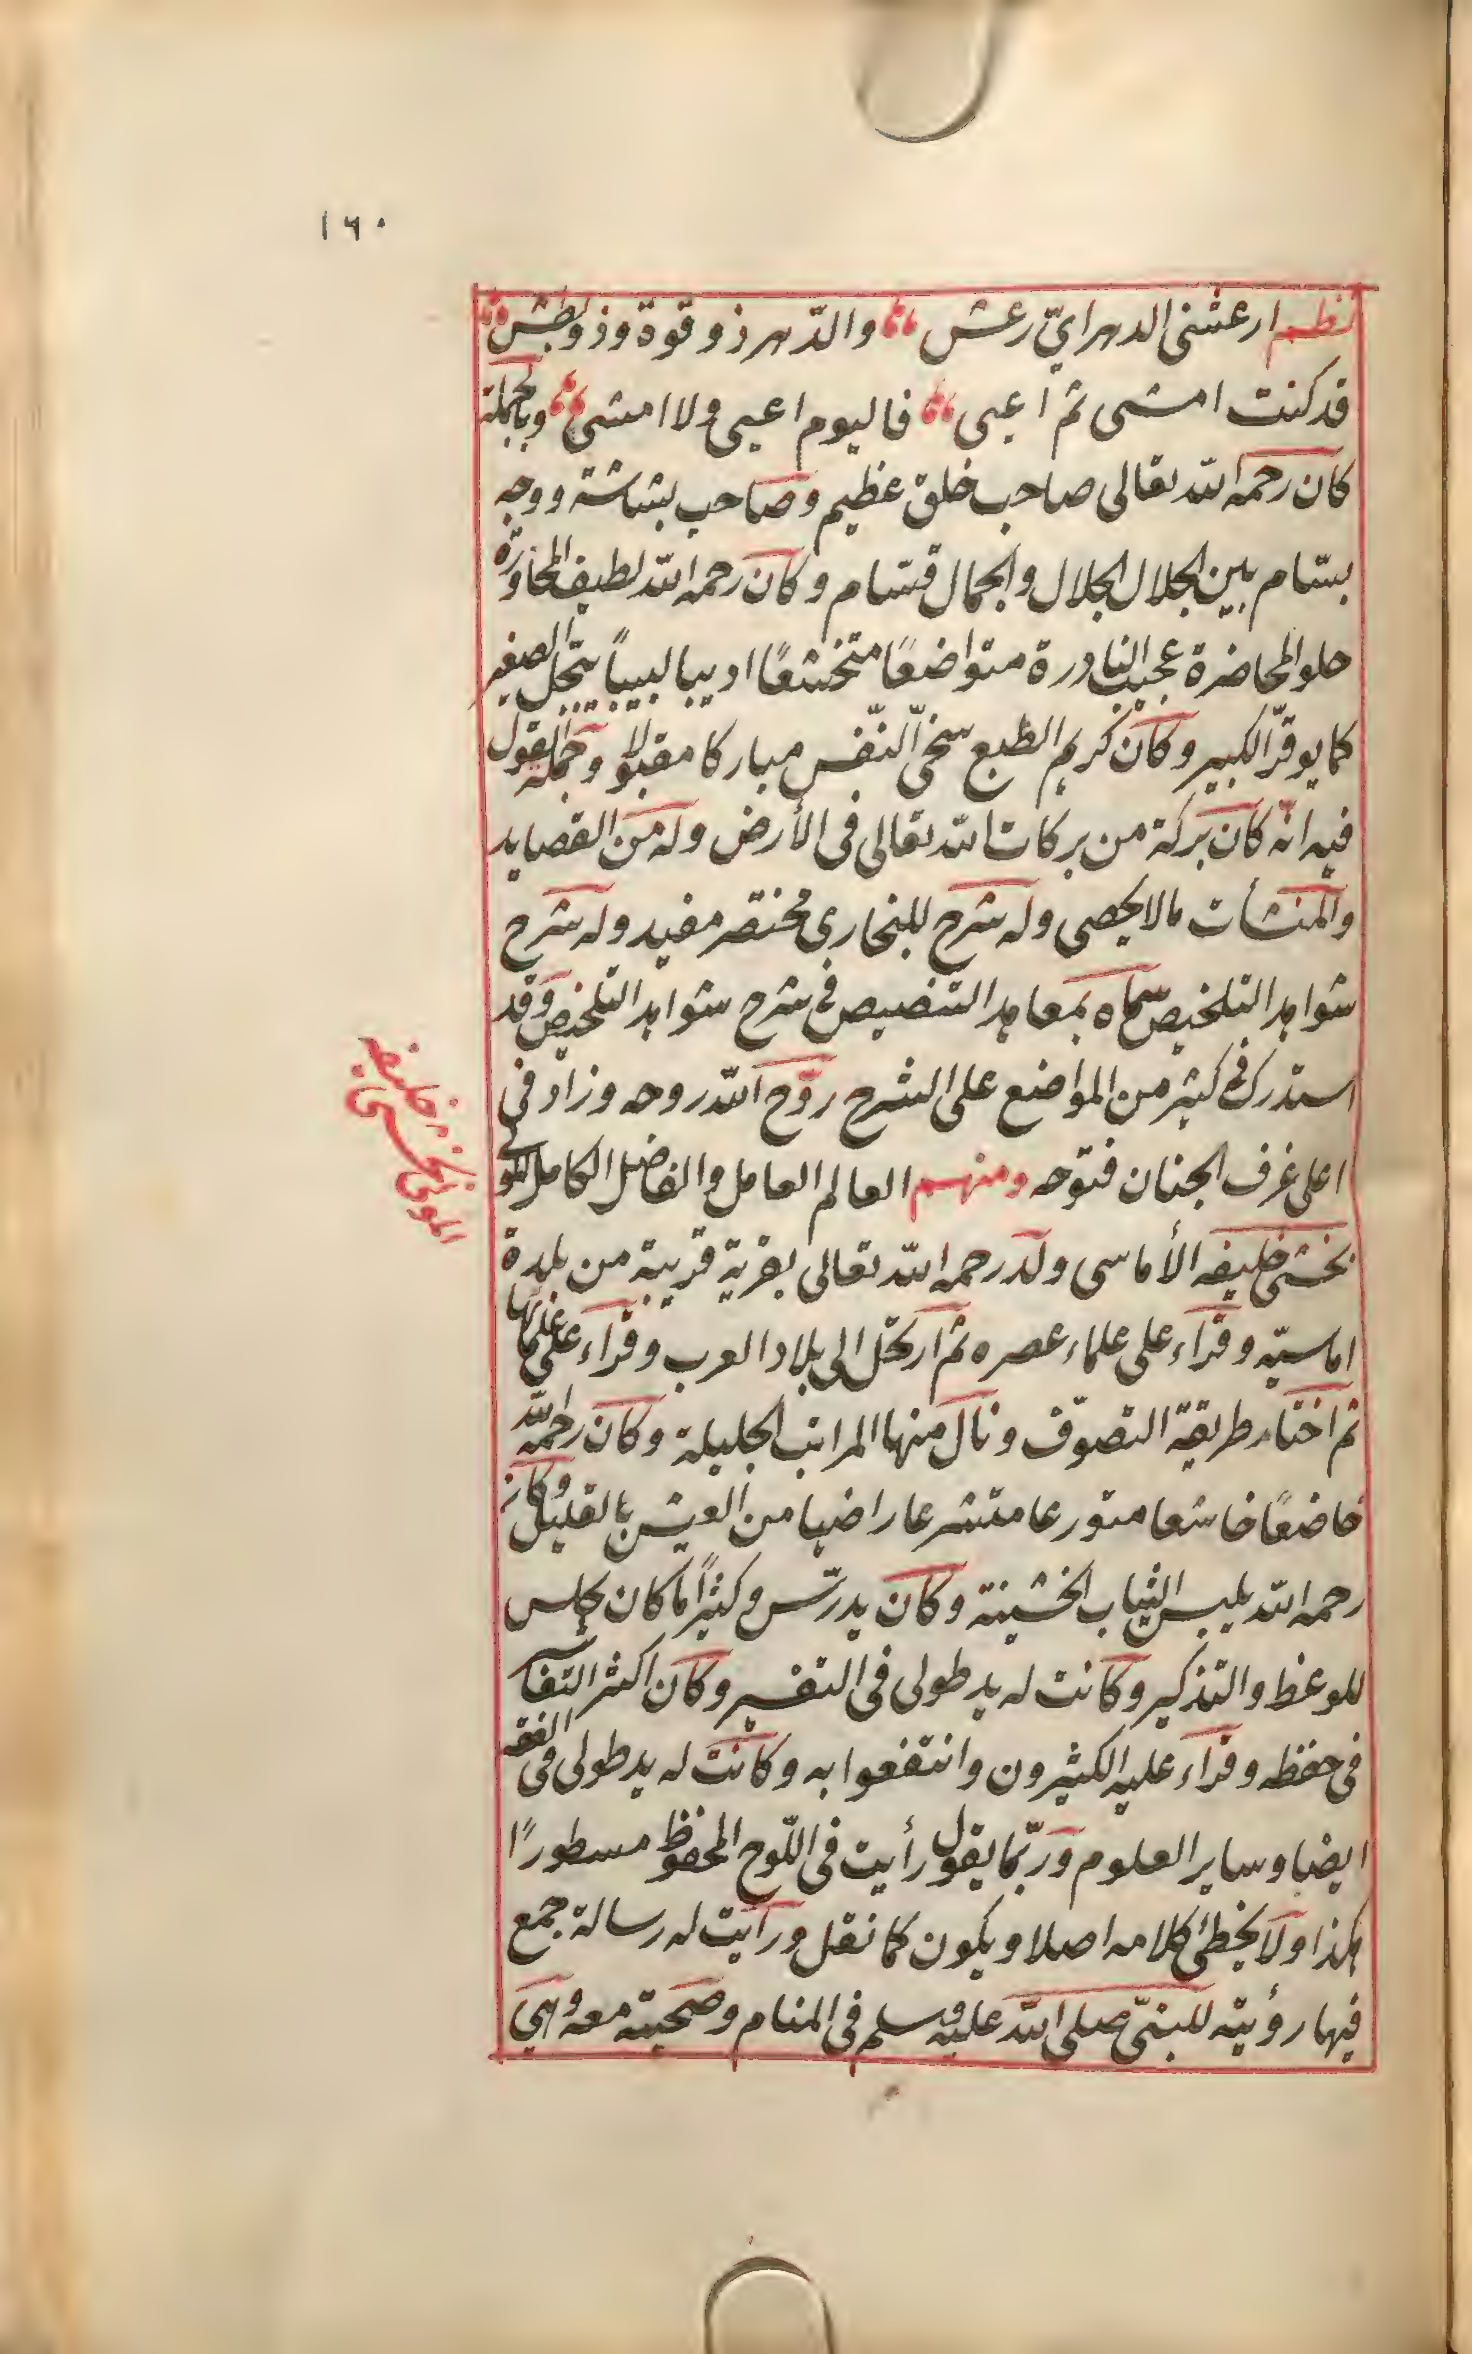 ١٦٠
نظم ارعشنى الدهر اىّ رعش والدّهر ذو قوة وذو بطش
قد كنت امشى ثم اعيى فاليوم اعيى ولا امشى وبالجملة
كان رحمه اللّه تعالى صاحب خلق عظيم وصاحب بشاشة ووجه
بسّام بين الجلال الجلال والجمال قسّام وكان رحمه اللّه لطيف المحاورة
حلو المحاضرة عجيب النادرة متواضعًا متخشعًا اديبا لبيباً يبجّل الصغير
كما يوقّر الكبير وكان كريم الطبع سخىّ النّفس مباركا مقبولا وجملة القول
فيه انّه كان بركة من بركات اللّه تعالى فى الأرض وله من القصايد
والمنشأت مالا يحصى وله شرح للبخارى مختصر مفيد وله شرح
شواهد التلخيص سماه بمعاهد التنصيص فى شرح شواهد التلخيص وقد
استدرك فى كثير من المواضع على الشرح روّح اللّه روحه وزاد فى
اعلى غرف الجنان فتوحه ومنهم العالم العامل والفاضل الكامل المولى
بخشى خليفه الأماسى ولد رحمه اللّه تعالى بقرية قريبة من بلدة
اماسيّه وقراء على علماء عصره ثم ارتحل الى بلاد العرب وقراء على علمائها
ثم اختار طريقة التصوّف ونال منها المراتب الجليلة وكان رحمه اللّه
خاضعًا خاشعا متورعا متشرعا راضيا من العيش بالقليل وكان
رحمه اللّه يلبس الثياب الخشينة وكان يدرّس وكثيرًا ما كان يجلس
للوعظ والتذكير وكانت له يد طولى فى التفسير وكان اكثر التفا
فى حفظه وقراء عليه الكثيرون وانتفعوا به وكانت له يد طولى فى الفقه
ايضا وساير العلوم وربّما يقول رأيت فى اللّوح المحفوظ مسطورًا
هكذا ولا يخطئ كلامه اصلا ويكون كما نقل ورأيت له رسالة جمع
فيها رؤيته للنبىّ صلى اللّه عليه وسلم فى المنام وصحبته معه وهى
المولى بخشى خليفه